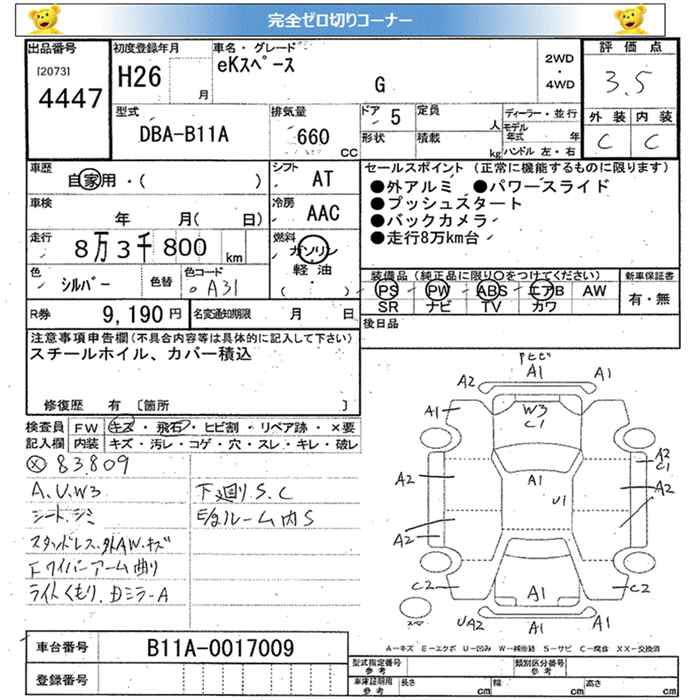 完全ゼロ切りコーナー
出品番号
[2073]
4447
初度登録年月
H26
月
車名・グレード
eKスペース
G
2WD
・
4WD
評価点
3.5
型式
DBA-B11A
排気量
660
CC
ドア
5
形状
定員
人
積載
kg
ディーラー・並行
モデル
年式
年
ハンドル 左・右
外装
内装
C
C
車歴
自家用・( )
シフト
AT
車検
年 月( 日)
冷房
AAC
走行
8万3千800
km
燃料
ガソリン
軽油
( )
色
シルバー
色替
色コード
A31
R券
9,190 円
名変通知期限
月 日
セールスポイント (正常に機能するものに限ります)
●外アルミ ●パワースライド
●プッシュスタート
●バックカメラ
●走行8万km台
装備品(純正品に限り○をつけてください)
新車保証書
PS PW ABS エアB AW
有・無
SR ナビ TV カワ
後日品
注意事項申告欄(不具合内容等は具体的に記入して下さい)
スチールホイル、カバー積込
修復歴 有 [箇所 ]
検査員
記入欄
FW
キズ・飛石・ヒビ割・リペア跡・×要
内装
キズ・汚レ・コゲ・穴・スレ・キレ・破レ
83809
A、U、W3
シート、シミ
スタッドレス、外AW、キズ
Fワイパーアーム曲り
ライトくもり、Dミラ-A
下廻りS、C
E/gルーム内S
A1
A2
A1
A1
A1
W3
C1
A2
C1
A2
A1
A2
U1
A2
A2
C2
C2
A1
UA2
A1
A2
A-キズ E-エクボ U-凹み W-補修跡 S-サビ C-腐食 XX-交換済
車台番号
B11A-0017009
登録番号
型式指定番号
参考
類別区分番号
参考
車庫証明用
参考
長さ
cm
幅
cm
高さ
cm